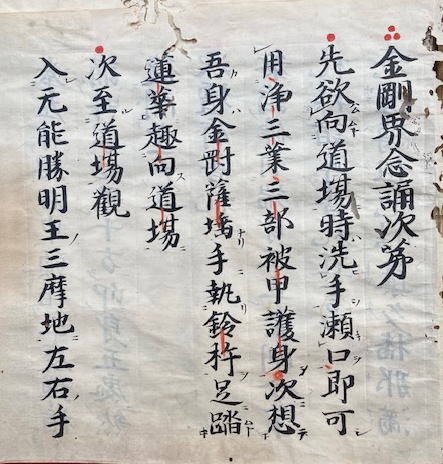 金剛界念誦次第
先欲向道場時洗手瀬口即可
用浄三業三部被甲護身次想
吾身金剛薩埵手執鈴杵足踏
蓮華趣向道場
次至道場觀
入元能勝明王三摩地左右手